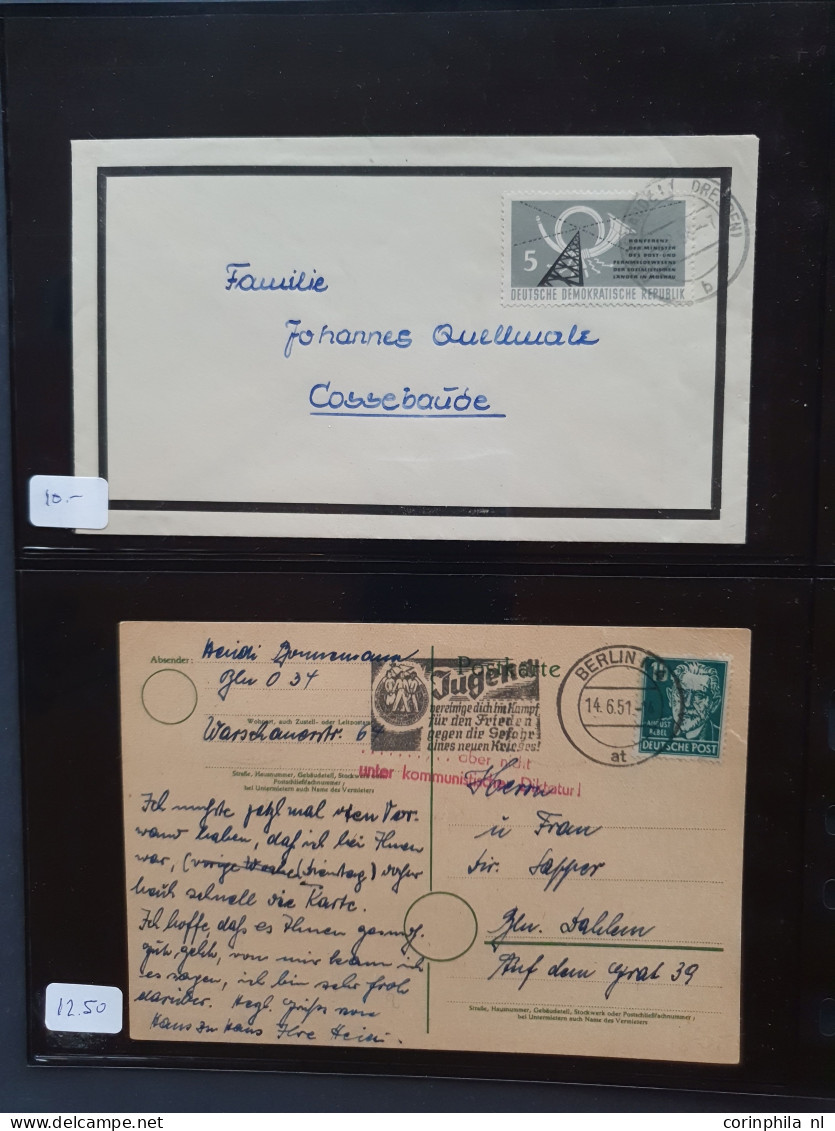 DRESDEN)
b
5
KONFERENZ
DER MINISTER
DES POST- UND
FERNMELDEWESENS
DER SOZIALISTISCHEN
LÄNDER IN MOSKAU
DEUTSCHE DEMOKRATISCHE REPUBLIK
Familie
Johannes Quellmalz
Cossebaude
10.-
Absender:
Heidi
Bln O 34
Wohnort, auch Zustell- oder Leitpostamt
Warschauerstr. 64
Straße, Hausnummer, Gebäudeteil, Stockwerk oder
Postschließfachnummer;
bei Untermietern auch Name des Vermieters
Postkarte
Jugend
vereinige dich im Kampf
für den Frieden
gegen die Gefahr
eines neuen Krieges!
aber nicht
unter kommunistischer Diktatur!
BERLIN
14.6.51
at
AUGUST
BEBEL
DEUTSCHE POST
Herrn
u Frau
Dir. Sapper
Bln. Dahlem
Auf dem Grat 39
Straße, Hausnummer, Gebäudeteil, Stockwerk oder Postschließfachnummer;
bei Untermietern auch Name des Vermieters
Ich mußte jetzt mal den Vor-
wand haben, daß ich bei Ihnen
war, (vorige Woche (Dienstag) daher
heut schnell die Karte.
Ich hoffe daß es Ihnen
gut geht, von mir kann ich
es sagen, ich bin sehr froh
darüber. Hzgl. Grüße von
Haus zu Haus Ihre Heidi.
12.50
corinphila nl